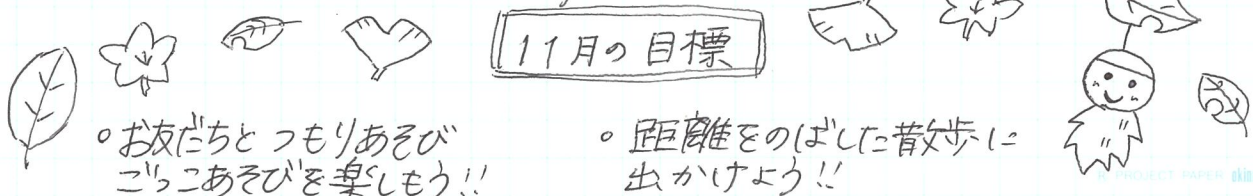 11月の目標
。お友だちと つもりあそび
ごっこあそびを楽しもう!!
。距離をのばした散歩に
出かけよう!!
PROJECT PAPER